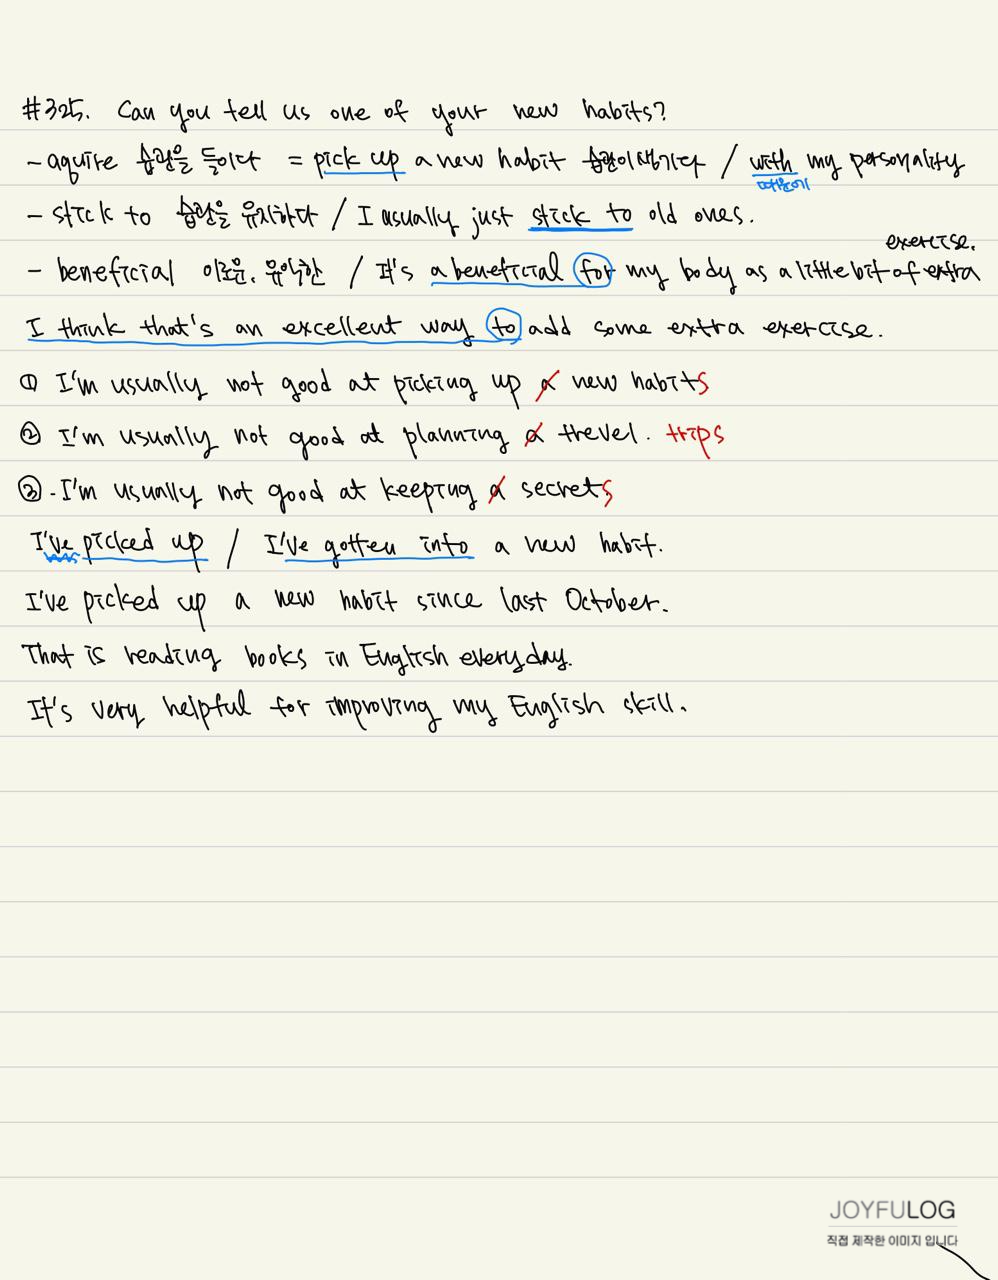 #325. Can you tell us one of your new habits?
- aquire 습관을 들이다 = pick up a new habit 습관이 생기다 / with my personality
때문에
- stick to 습관을 유지하다 / I usually just stick to old ones.
exercise.
- beneficial 이로운, 유익한 / It's a beneficial for my body as a little bit of extra
I think that's an excellent way to add some extra exercise.
① I'm usually not good at picking up a new habits
② I'm usually not good at planning a trevel. trips
③ - I'm usually not good at keeping a secrets
I've picked up / I've gotten into a new habit.
I've picked up a new habit since last October.
That is reading books in English everyday.
It's very helpful for improving my English skill.
JOYFULOG
직접 제작한 이미지 입니다